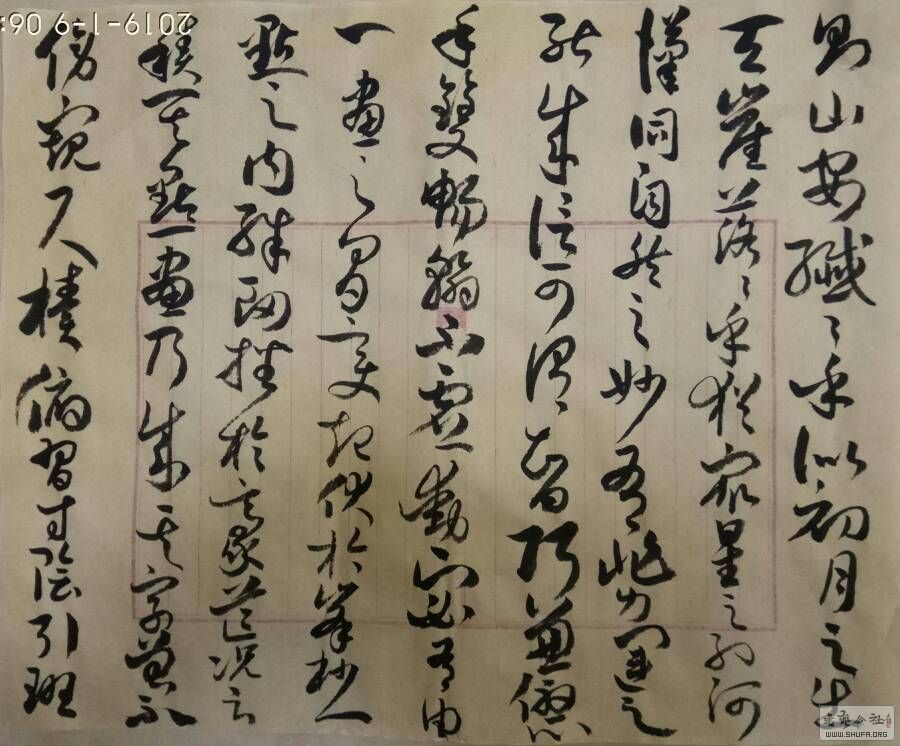 則山安纖〻乎似初月之出
天崖落〻乎猶眾星之列河
漢同自然之妙有非力運之
能成信可謂智巧兼優心
手雙暢翰不虛動下必有由
一畫之間變起伏於峯杪一
點之內殊衄挫於豪芒況云
積其點畫乃成其字曾不
傍窺尺櫝俯習寸陰引班
2019-1-9 06:
WWW.SHUFA.ORG